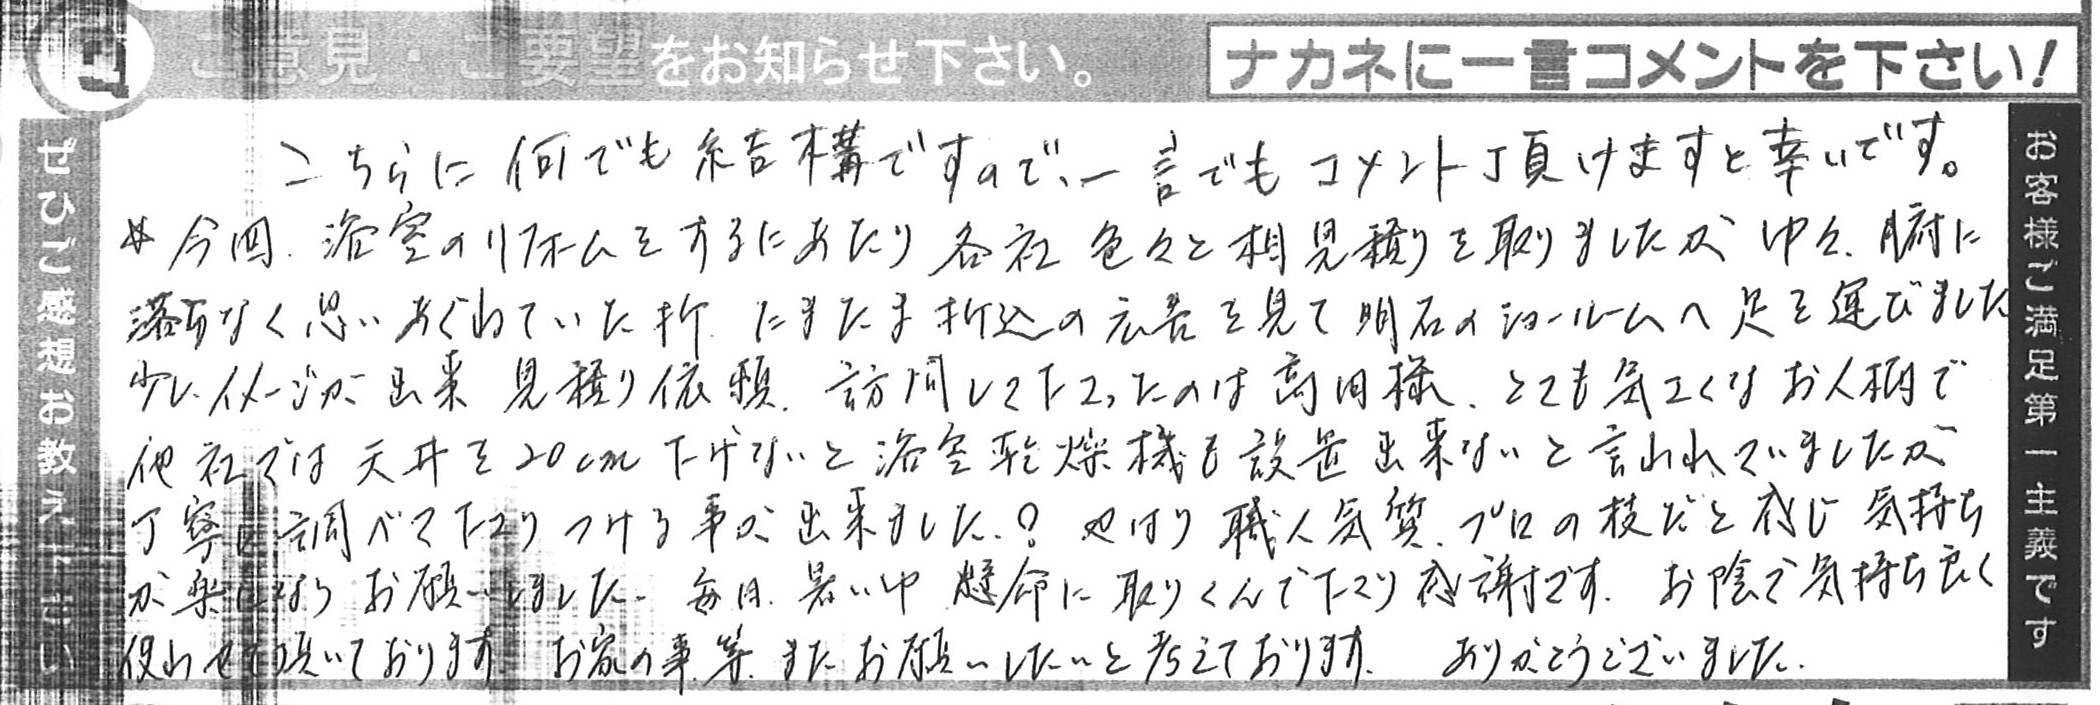 ご意見・ご要望をお知らせ下さい。
ナカネに一言コメントを下さい!
ぜひご感想お教え下さい
こちらに何でも結構ですので、一言でもコメント頂けますと幸いです。
今回、浴室のリフォームをするにあたり各社色々と相見積りを取りましたが中々、腑に
落ちなく思いあぐねていた折、たまたま折込の広告を見て明石のショールームへ足を運びました
少しイメージが出来見積り依頼、訪問して下さったのは高田様、とても気さくなお人柄で
他社では天井を20cm下げないと浴室乾燥機も設置出来ないと言われていましたが
丁寧に調べて下さりつける事が出来ました。? やはり職人気質、プロの技だと感じ気持ち
が楽になり お願いしました。毎日、暑い中懸命に取りくんで下さり感謝です。お陰で気持ち良く
使わせて頂いております。お家の事、等、またお願いしたいと考えております。ありがとうございました。
お客様ご満足第一主義です